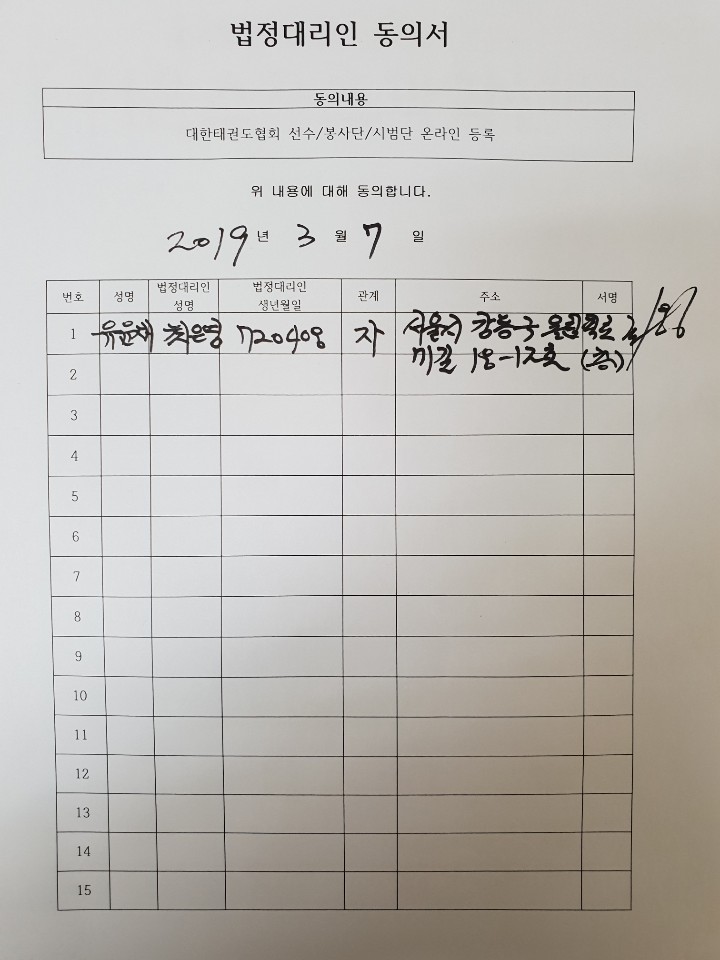 법정대리인 동의서
동의내용
대한태권도협회 선수/봉사단/시범단 온라인 등록
위 내용에 대해 동의합니다.
2019 년 3 월 7 일
번호 성명 법정대리인 성명 법정대리인 생년월일 관계 주소 서명
1 유윤재 최은영 720408 자 서울시 강동구 올림픽로
2 18-12호
3
4
5
6
7
8
9
10
11
12
13
14
15